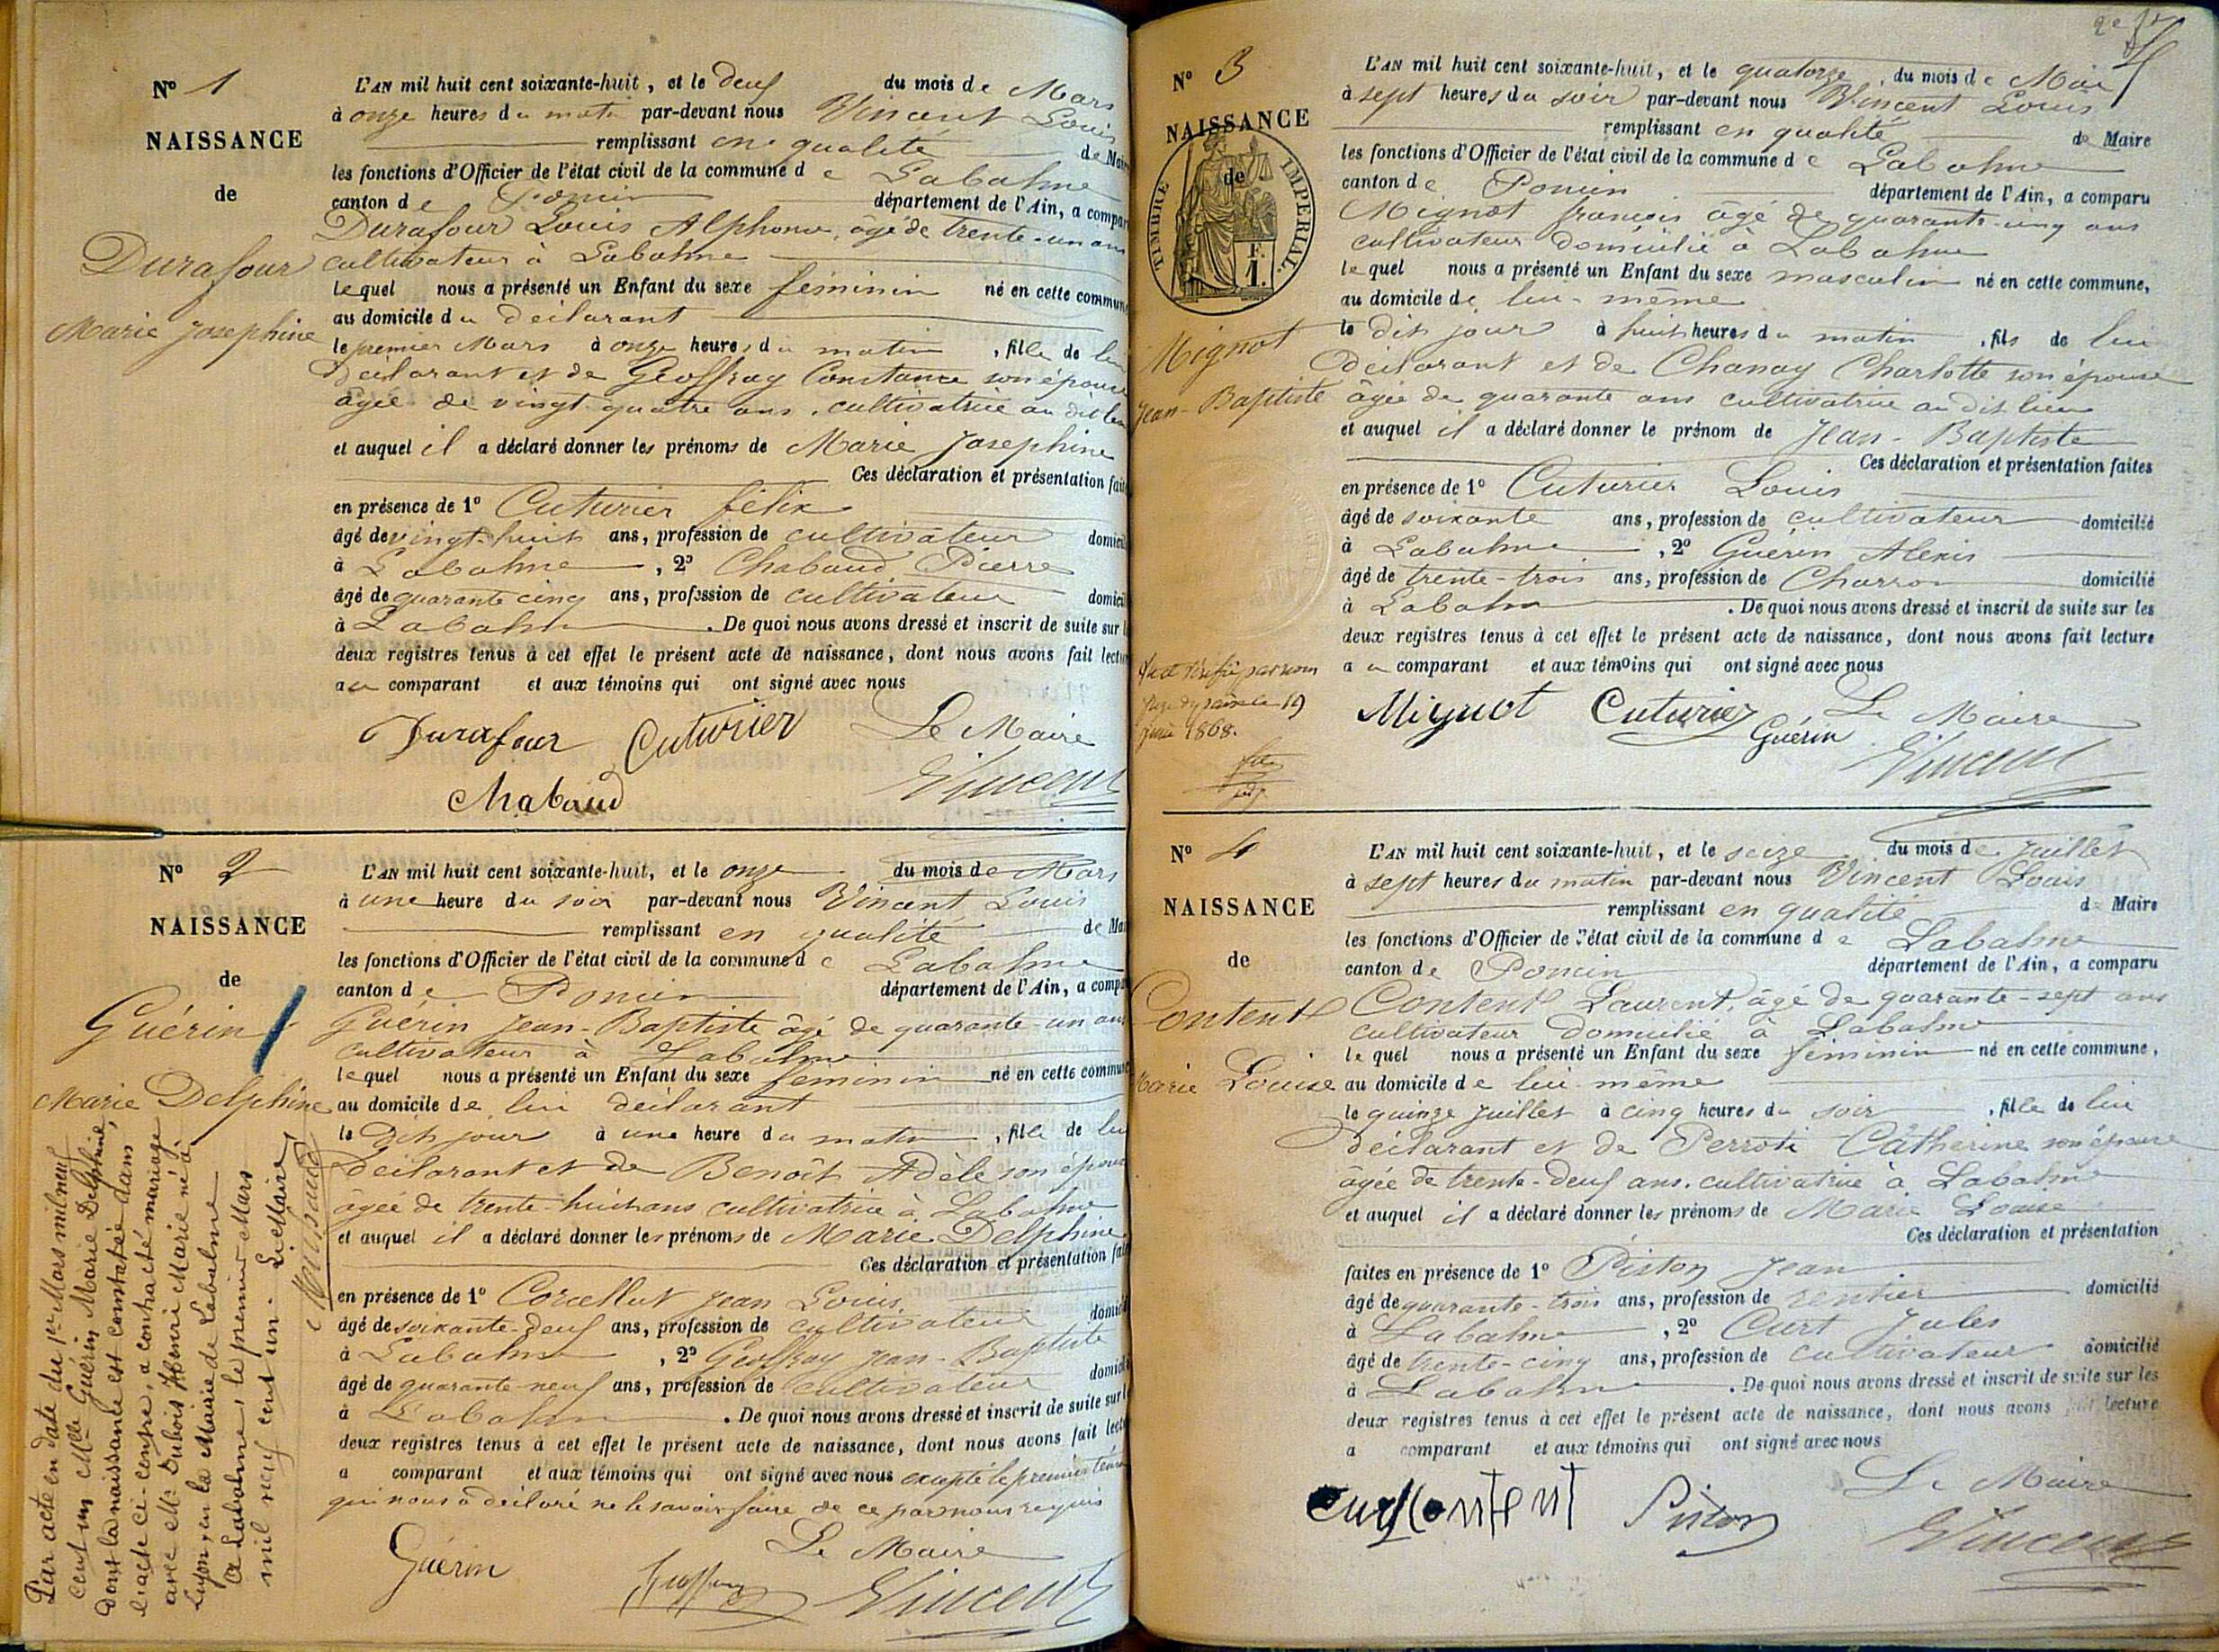 Nº 1
NAISSANCE
de
Durafour
Marie Josephine
L'AN mil huit cent soixante-huit, et le deux du mois de Mars
à onze heures du matin par-devant nous Vincent Louis
remplissant en qualité de Maire
les fonctions d'Officier de l'état civil de la commune de Labalme
canton de Poncin département de l'Ain, a compar
Durafour Louis Alphonse, âgé de trente-un ans
cultivateur à Labalme
lequel nous a présenté un Enfant du sexe féminin né en cette commune
au domicile du déclarant
le premier Mars à onze heures du matin, fille de lui
déclarant et de Geoffray Constance son épouse
âgée de vingt quatre ans, cultivatrice au dit lieu
et auquel il a déclaré donner les prénoms de Marie Josephine
Ces déclaration et présentation fait
en présence de 1º Cuturier félix
âgé de vingt-huit ans, profession de cultivateur domici
à Labalme, 2º Chabaud Pierre
âgé de quarante cinq ans, profession de cultivateur domici
à Labalme. De quoi nous avons dressé et inscrit de suite sur l
deux registres tenus à cet effet le présent acte de naissance, dont nous avons fait lectu
au comparant et aux témoins qui ont signé avec nous
Durafour Cuturier Le Maire
Chabaud Vincent
Nº 2
NAISSANCE
de
Guérin
Marie Delphine
L'AN mil huit cent soixante-huit, et le onze du mois de Mars
à une heure du soir par-devant nous Vincent Louis
remplissant en qualité de Mai
les fonctions d'Officier de l'état civil de la commune de Labalme
canton de Poncin département de l'Ain, a compa
Guérin Jean-Baptiste âgé de quarante-un ans
cultivateur à Labalme
lequel nous a présenté un Enfant du sexe féminin né en cette commune
au domicile de lui déclarant
le dit jour à une heure du matin, fille de lui
déclarant et de Benoît Adèle son épouse
âgée de trente-huit ans cultivatrice à Labalme
et auquel il a déclaré donner les prénoms de Marie Delphine
Ces déclaration et présentation fai
en présence de 1º Jean Louis
âgé de soixante-deux ans, profession de cultivateur domici
à Labalme, 2º Geoffray Jean-Baptiste
âgé de quarante-neuf ans, profession de cultivateur domici
à Labalme. De quoi nous avons dressé et inscrit de suite sur l
deux registres tenus à cet effet le présent acte de naissance, dont nous avons fait lect
a comparant et aux témoins qui ont signé avec nous excepté le premier témoin
qui nous a déclaré ne le savoir faire de ce par nous requis
Guérin Le Maire
Geoffray Vincent
Par acte en date du 1er Mars mil neuf
cent un Mlle Guérin Marie Delphine,
dont la naissance est constatée dans
l'acte ci-contre, a contracté mariage
avec Mr Dubois Henri Marie né à
Luyon, en la Mairie de Labalme
A Labalme, le premier Mars
mil neuf cent un. Le Maire
Nº 3
NAISSANCE
de
TIMBRE IMPERIAL.
F.
1.
Mignot
Jean-Baptiste
L'AN mil huit cent soixante-huit, et le quatorze du mois de Mai
à sept heures du soir par-devant nous Vincent Louis
remplissant en qualité de Maire
les fonctions d'Officier de l'état civil de la commune de Labalme
canton de Poncin département de l'Ain, a comparu
Mignot françois âgé de quarante-cinq ans
cultivateur domicilié à Labalme
lequel nous a présenté un Enfant du sexe masculin né en cette commune,
au domicile de lui-même
le dit jour à huit heures du matin, fils de lui
déclarant et de Chanay Charlotte son épouse
âgée de quarante ans cultivatrice au dit lieu
et auquel il a déclaré donner le prénom de Jean-Baptiste
Ces déclaration et présentation faites
en présence de 1º Cuturier Louis
âgé de soixante ans, profession de cultivateur domicilié
à Labalme, 2º Guérin Alexis
âgé de trente-trois ans, profession de Charron domicilié
à Labalme. De quoi nous avons dressé et inscrit de suite sur les
deux registres tenus à cet effet le présent acte de naissance, dont nous avons fait lecture
au comparant et aux témoins qui ont signé avec nous
par nous
juge de paix le 19
juin 1868.
Mignot Cuturier Le Maire
Guérin Vincent
Nº 4
NAISSANCE
de
Content
Marie Louise
L'AN mil huit cent soixante-huit, et le seize du mois de Juillet
à sept heures du matin par-devant nous Vincent Louis
remplissant en qualité de Maire
les fonctions d'Officier de l'état civil de la commune de Labalme
canton de Poncin département de l'Ain, a comparu
Content Laurent, âgé de quarante-sept ans
cultivateur domicilié à Labalme
lequel nous a présenté un Enfant du sexe féminin né en cette commune,
au domicile de lui même
le quinze Juillet à cinq heures du soir, fille de lui
déclarant et de Perroti Câtherine son épouse
âgée de trente-deux ans, cultivatrice à Labalme
et auquel il a déclaré donner les prénoms de Marie Louise
Ces déclaration et présentation
faites en présence de 1º Piston Jean
âgé de quarante-trois ans, profession de rentier domicilié
à Labalme, 2º Curt Jules
âgé de trente-cinq ans, profession de cultivateur domicilié
à Labalme. De quoi nous avons dressé et inscrit de suite sur les
deux registres tenus à cet effet le présent acte de naissance, dont nous avons fait lecture
a comparant et aux témoins qui ont signé avec nous
Le Maire
curt content Piston Vincent